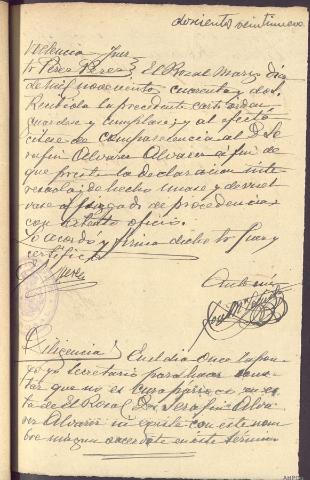 doscientos veintinueve
Providencia Juez
Sr Perez Perez } El Rosal Marzo diez
de mil novecientos cuarenta y dos.
Recibida la precedente carta orden
guardese y cumplase; y al efecto
citese de comparecencia al D. Se
rafin Alvarez Alvarez a fin de
que preste la declaracion inte
resada; de hecho unase y devuel
vase al Juzgado de procedencia
con atento oficio.
Lo acordó y firma dicho Sr Juez
certifico
Perez
Ante mi
José Mª
Diligencia } En el dia once la pon-
go yo Secretario para hacer cons-
tar que no es cura párroco en es-
ta de El Rosal D. Serafin Alva
rez Alvarez ni existe con este nom
bre ningun sacerdote en este término